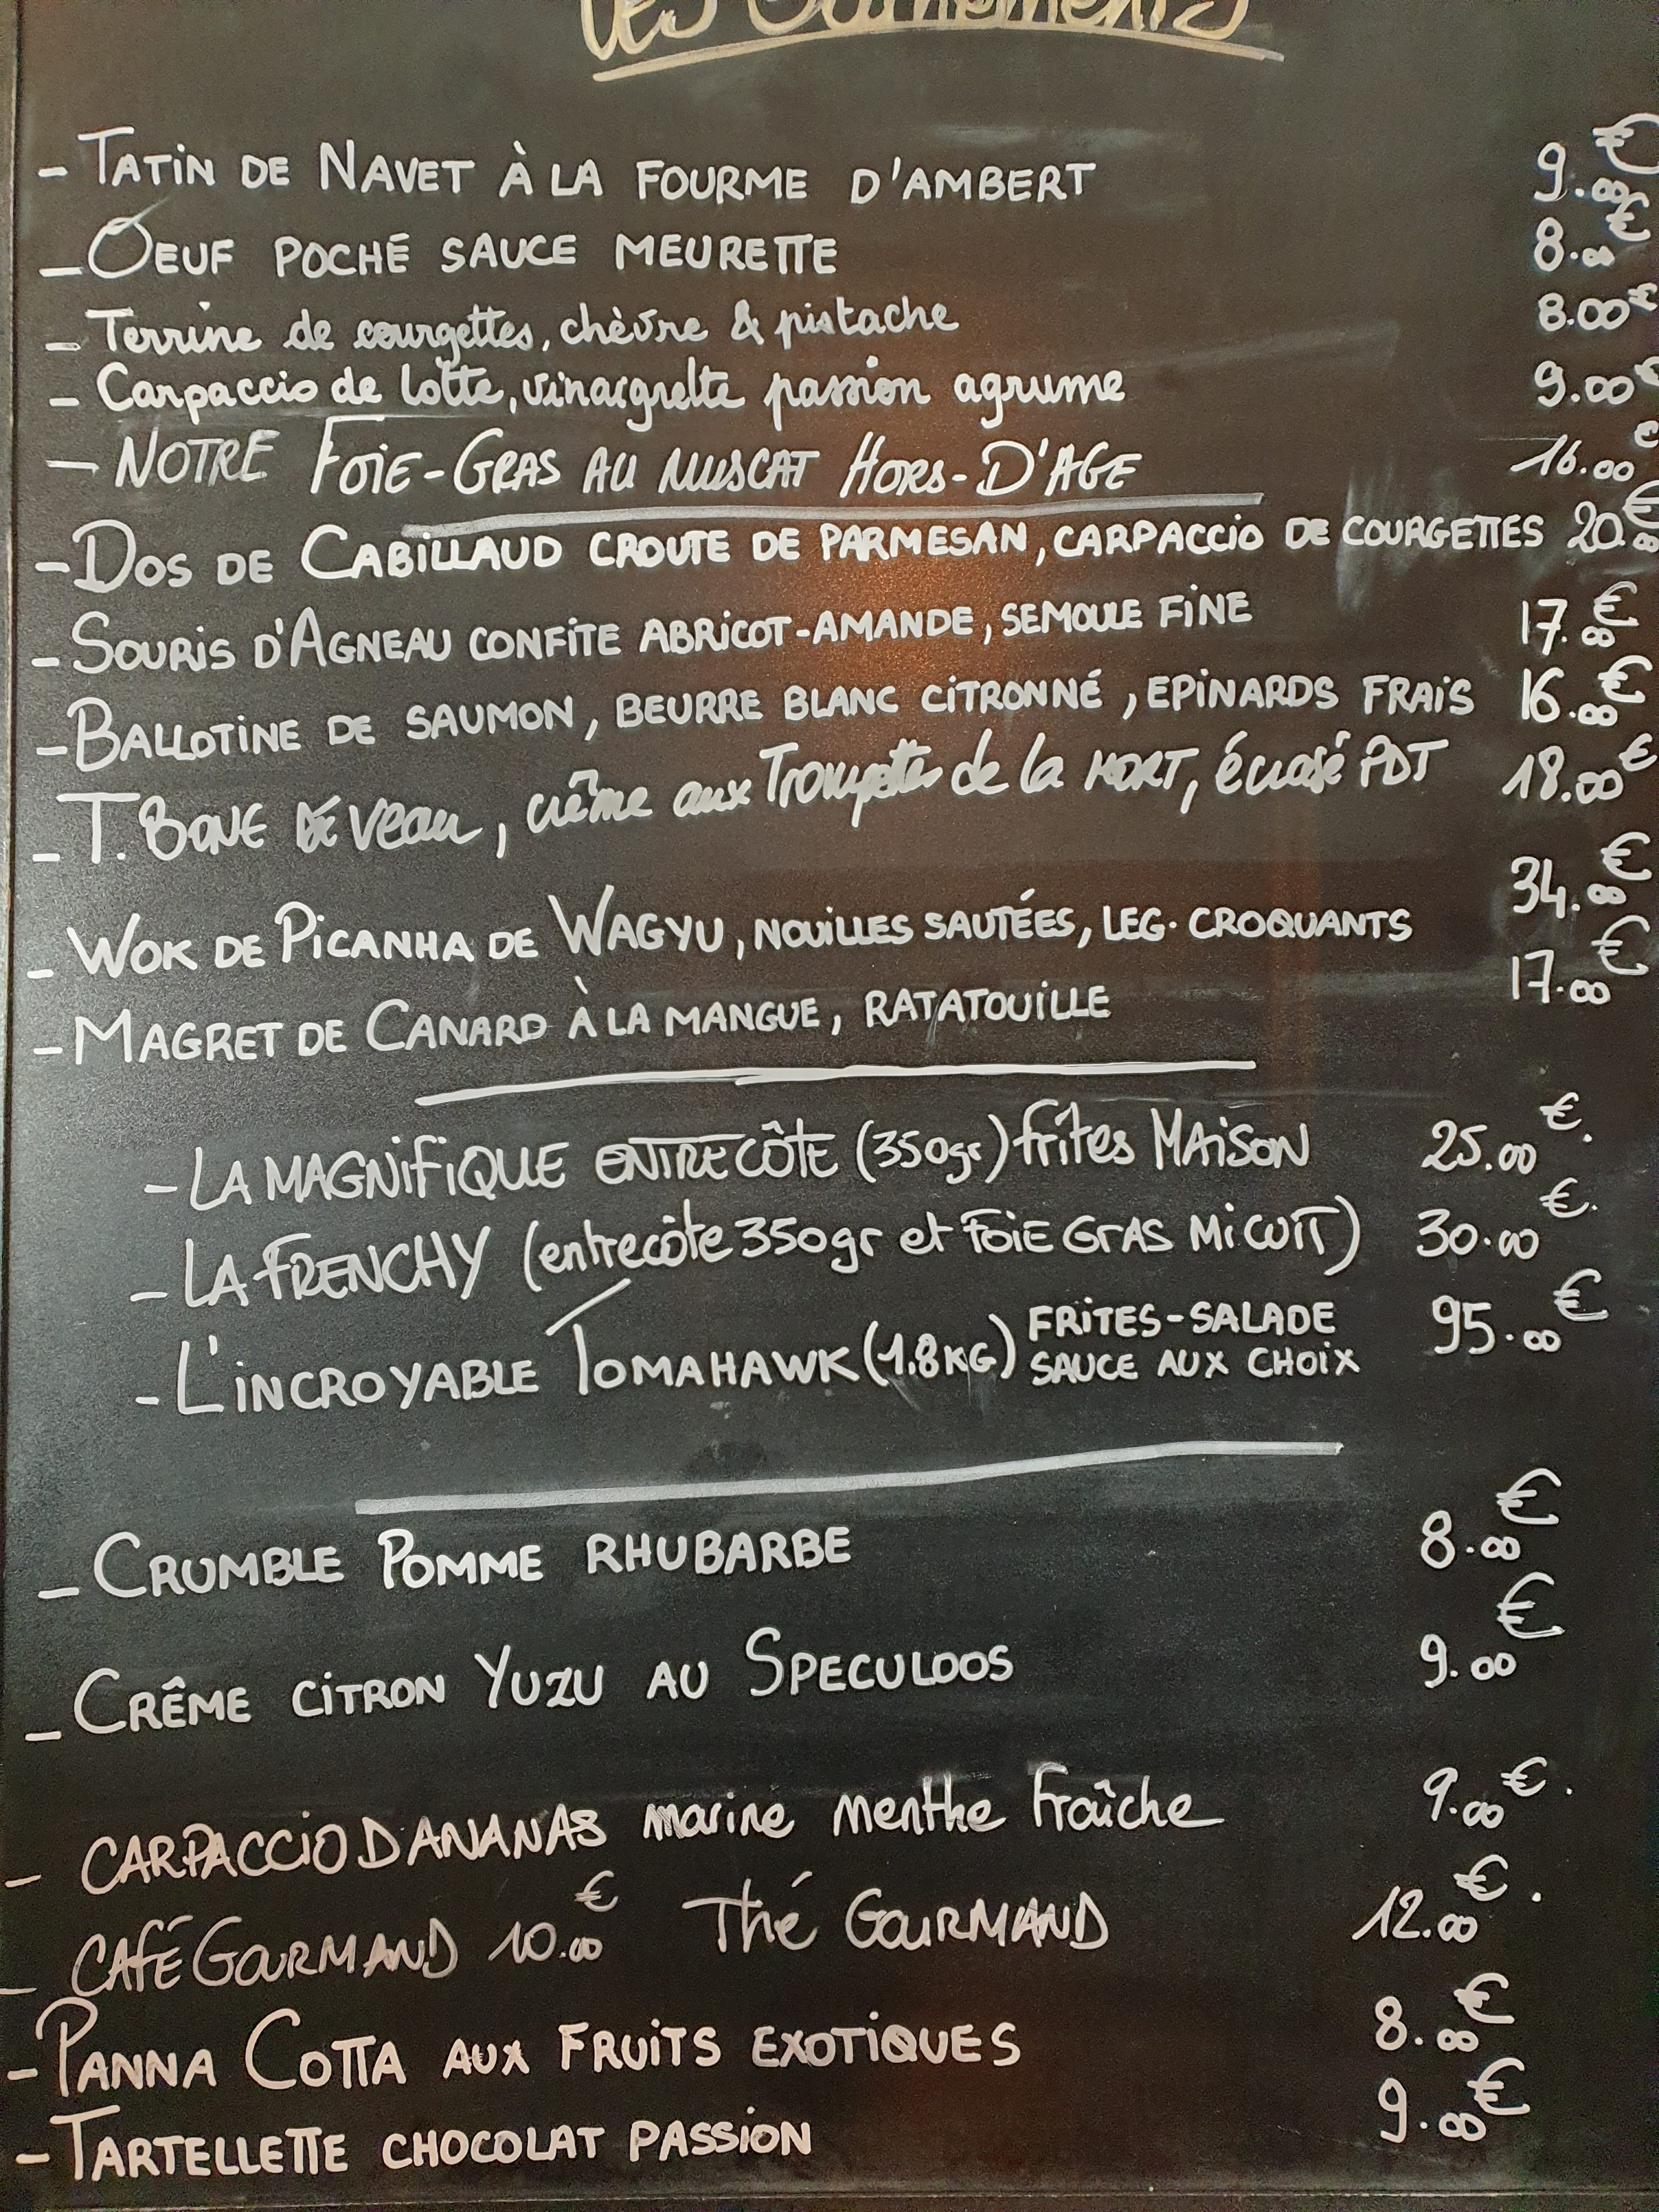 LES
- TATIN DE NAVET À LA FOURME D'AMBERT 9.00€
- OEUF POCHÉ SAUCE MEURETTE 8.00€
- Terrine de courgettes, chèvre & pistache 8.00€
- Carpaccio de lotte, vinaigrette passion agrume 9.00€
- NOTRE FOIE-GRAS AU MUSCAT HORS-D'AGE 16.00€
- DOS DE CABILLAUD CROUTE DE PARMESAN, CARPACCIO DE COURGETTES 20.00€
- SOURIS D'AGNEAU CONFITE ABRICOT-AMANDE, SEMOULE FINE 17.00€
- BALLOTINE DE SAUMON, BEURRE BLANC CITRONNÉ, EPINARDS FRAIS 16.00€
- T. BONE DE Veau, crême aux Trompettes de la MORT, écrasé PDT 18.00€
- WOK DE PICANHA DE WAGYU, NOUILLES SAUTÉES, LEG. CROQUANTS 34.00€
- MAGRET DE CANARD À LA MANGUE, RATATOUILLE 17.00€
- LA MAGNIFIQUE ENTRECÔTE (350gr) frites MAISON 25.00€.
- LA FRENCHY (entrecôte 350gr et FOIE GRAS Mi CUIT) 30.00€.
- L'INCROYABLE TOMAHAWK (1.8KG) FRITES-SALADE 95.00€
SAUCE AUX CHOIX
- CRUMBLE POMME RHUBARBE 8.00€
- CRÊME CITRON YUZU AU SPECULOOS 9.00€
- CARPACCIO D ANANAS marine menthe Fraîche 9.00€.
- CAFÉ GOURMAND 10.00€ Thé GOURMAND 12.00€.
- PANNA COTTA AUX FRUITS EXOTIQUES 8.00€
- TARTELLETTE CHOCOLAT PASSION 9.00€